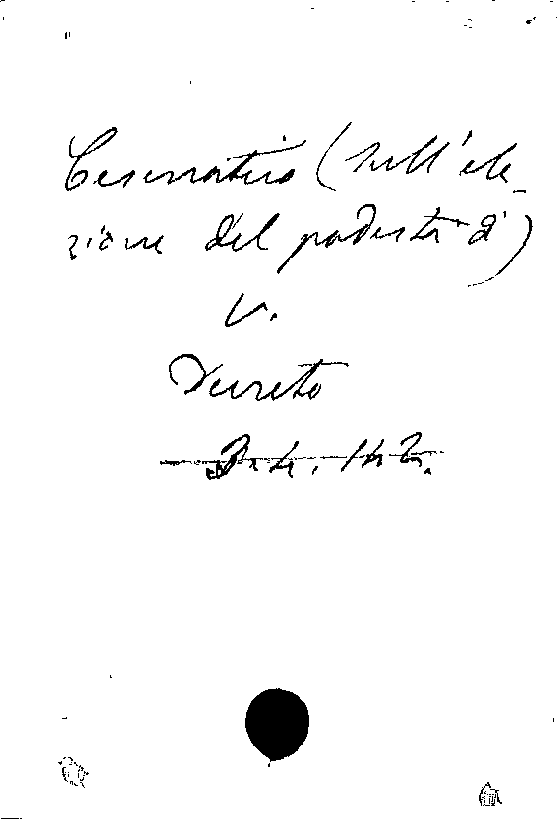 Cesenatico (sull'ele-
zione del podestà di)
V.
Decreto
3. 4. 142.